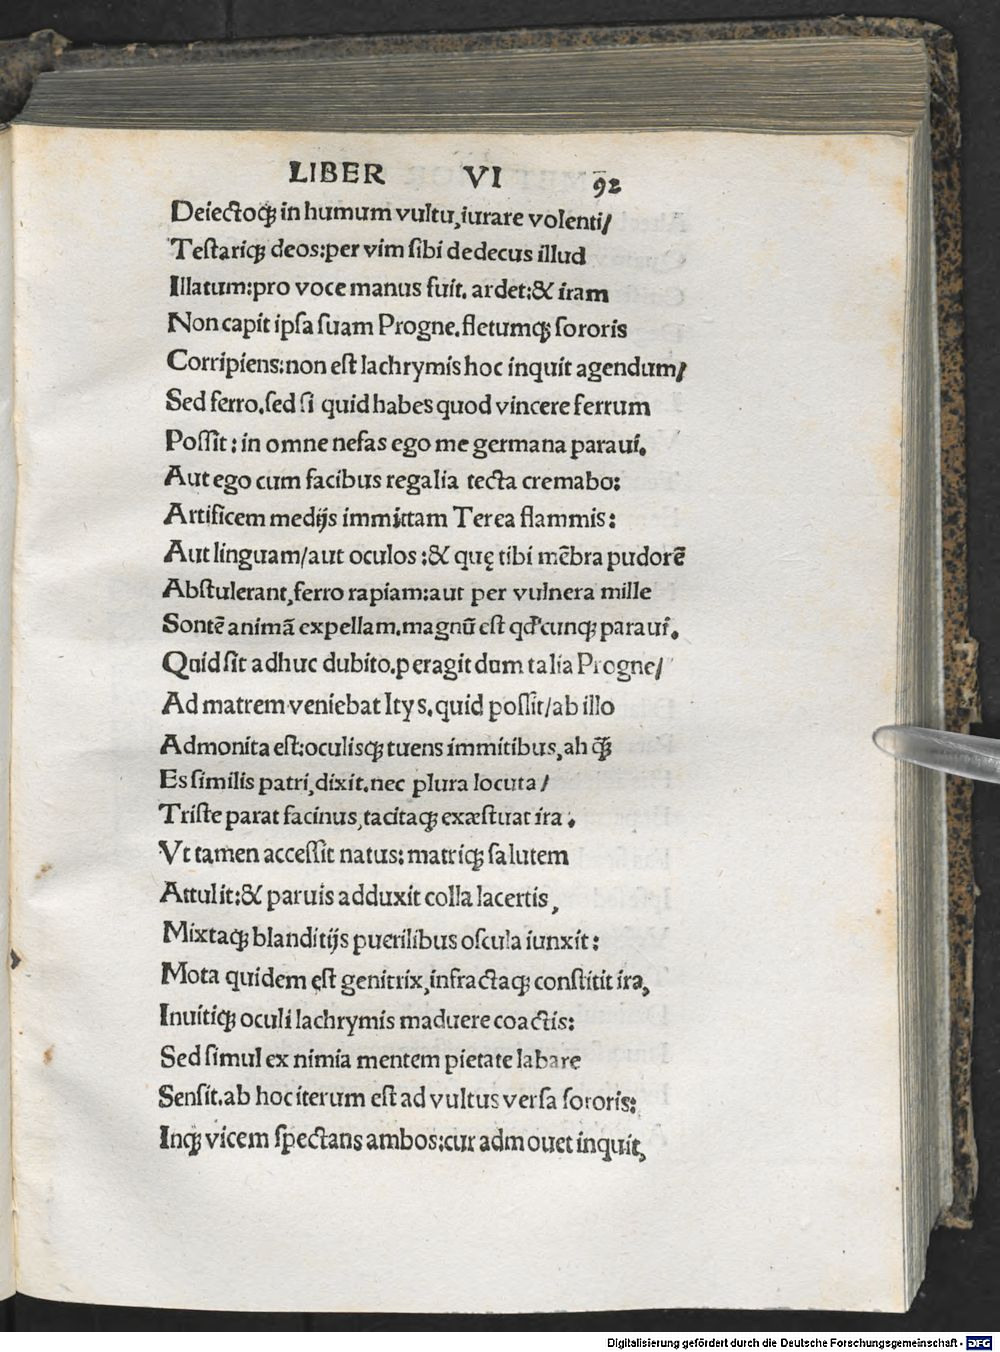 LIBER VI 92
Deiectoqꝫ in humum vultu,iurare volenti/
Testariqꝫ deos:per vim sibi dedecus illud
Illatum:pro voce manus fuit. ardet:& iram
Non capit ipsa suam Progne.fletumqꝫ sororis
Corripiens:non est lachrymis hoc inquit agendum/
Sed ferro.sed si quid habes quod vincere ferrum
Possit: in omne nefas ego me germana paraui.
Aut ego cum facibus regalia tecta cremabo:
Artificem medijs immittam Terea flammis:
Aut linguam/aut oculos:& quę tibi mēbra pudorē
Abstulerant,ferro rapiam:aut per vulnera mille
Sontē animā expellam.magnū est qd'cunqꝫ paraui.
Quid sit adhuc dubito.peragit dum talia Progne/
Ad matrem veniebat Itys.quid possit/ab illo
Admonita est:oculisqꝫ tuens immitibus,ah qꝫ̄
Es similis patri,dixit.nec plura locuta/
Triste parat facinus,tacitaqꝫ exæstuat ira.
Vt tamen accessit natus:matriqꝫ salutem
Attulit:& paruis adduxit colla lacertis,
Mixtaqꝫ blanditijs puerilibus oscula iunxit:
Mota quidem est genitrix,infractaqꝫ constitit ira,
Inuitiqꝫ oculi lachrymis maduere coactis:
Sed simul ex nimia mentem pietate labare
Sensit.ab hoc iterum est ad vultus versa sororis:
Inqꝫ vicem spectans ambos:cur admouet inquit,
Digitalisierung gefördert durch die Deutsche Forschungsgemeinschaft - DFG